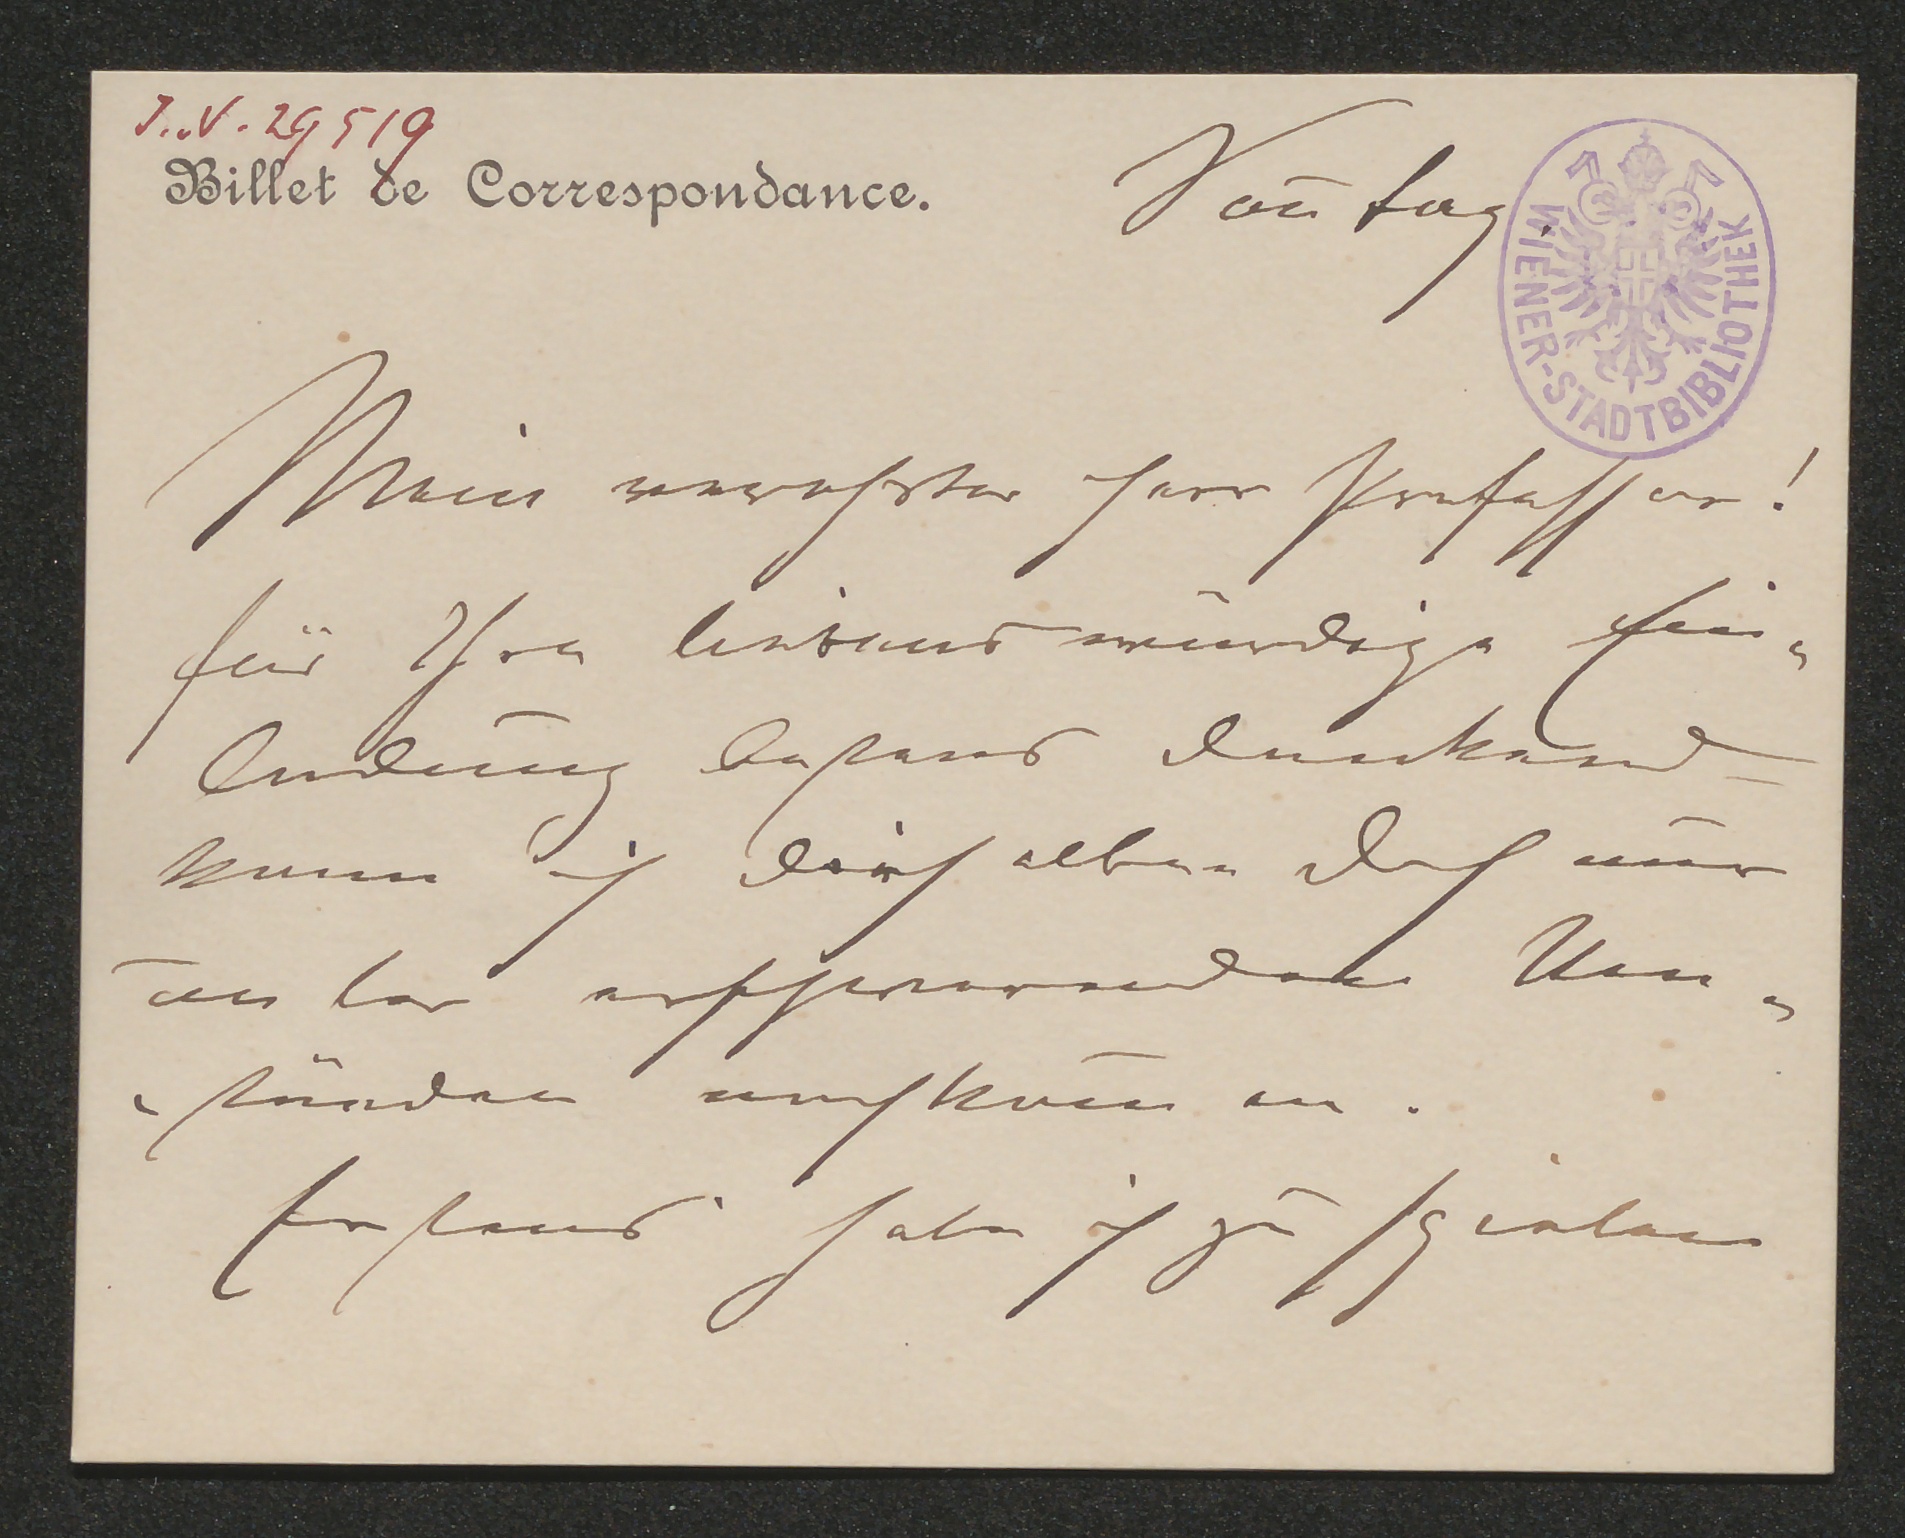 J.N. 29519
Billet de Correspondance.
Soñtag.
WIENER-STADTBIBLIOTHEK
Mein verehrter Herr Professor!
für Ihre liebenswürdige Ein„
ladung bestens dankend –
kann ich derselben doch nur
unter erschwerenden Um„
„ständen nachkom̄en.
Erstens habe ich zu spielen